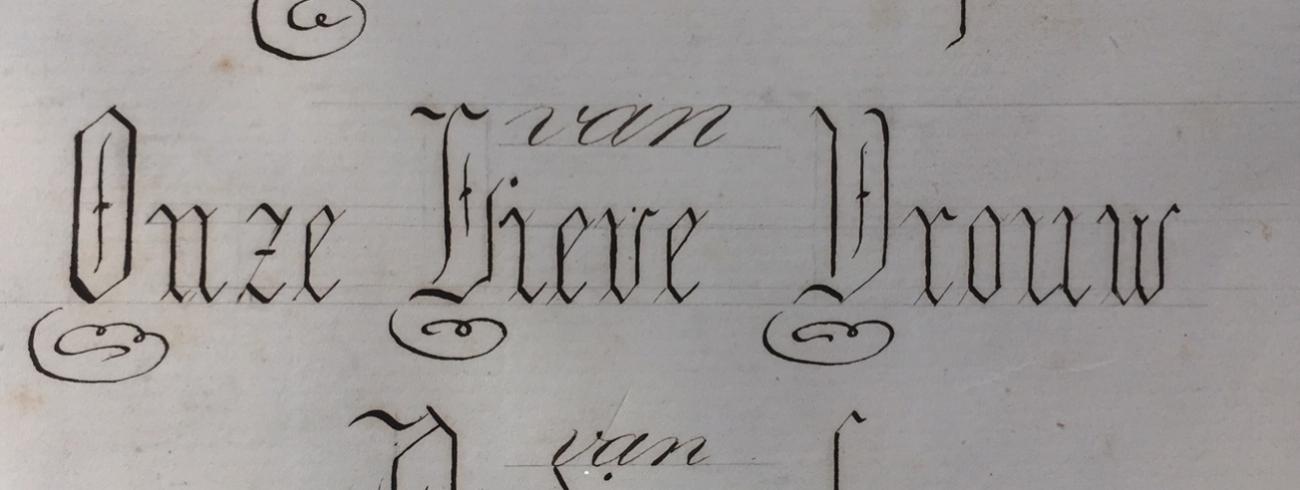 van
Onze Lieve Vrouw
van